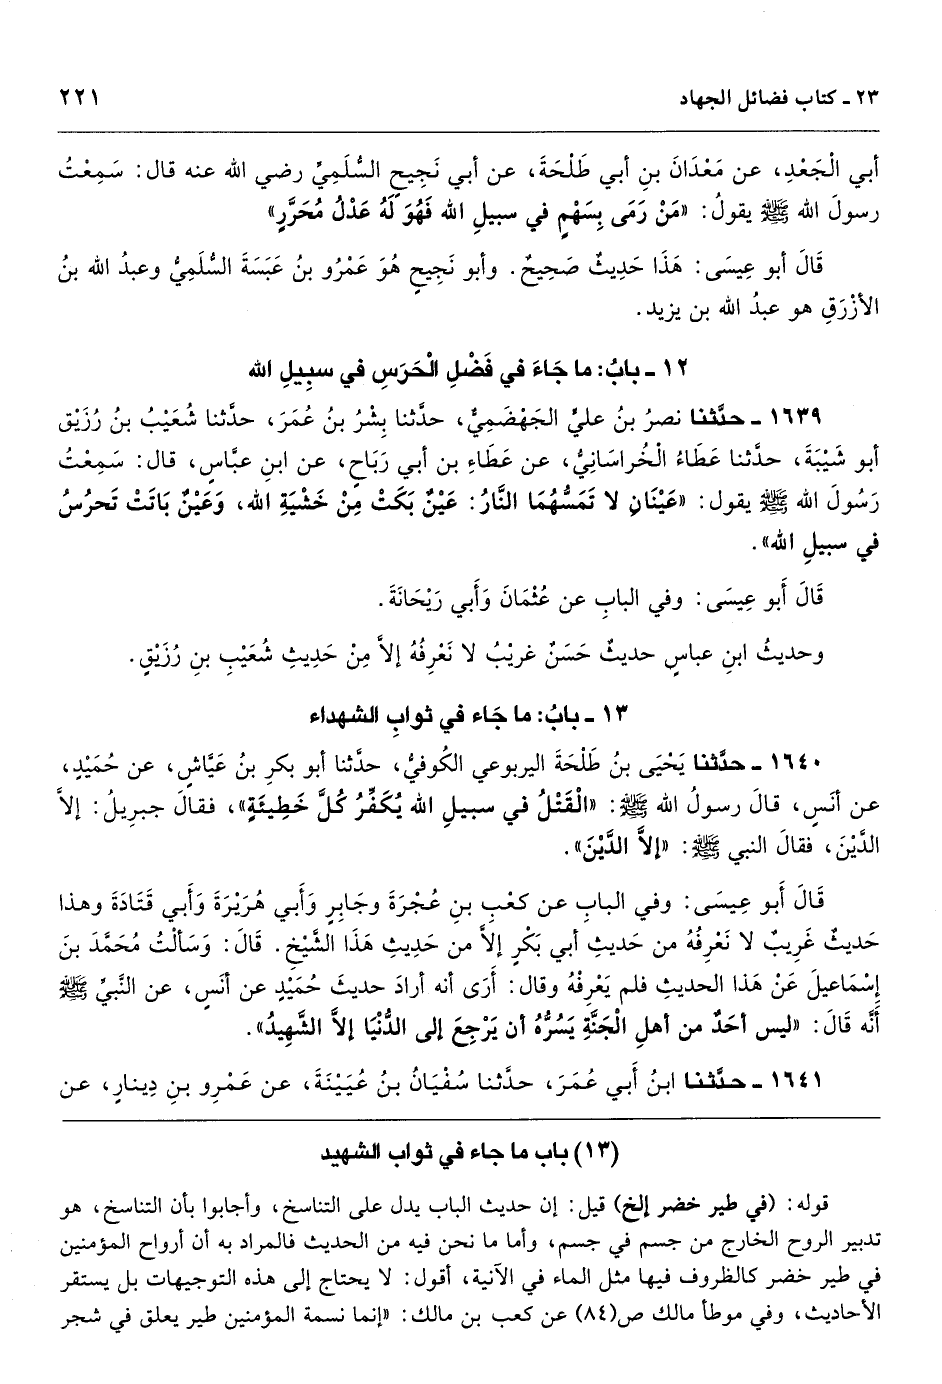 ٢٣ ـ كتاب فضائل الجهاد ٢٢١
أبي الْجَعْدِ، عن مَعْدَانَ بنِ أبي طَلْحَةَ، عن أبي نَجِيحٍ السُّلَمِيِّ رضي الله عنه قال: سَمِعْتُ
رسولَ الله ﷺ يقولُ: «مَنْ رَمَى بِسَهْمٍ في سبيلِ الله فَهُوَ لَهُ عَدْلُ مُحَرَّرٍ»
قَالَ أبو عِيسَى: هَذَا حَدِيثٌ صَحِيحٌ. وأبو نَجِيحٍ هُوَ عَمْرُو بنُ عَبَسَةَ السُّلَمِيُّ وعبدُ الله بنُ
الأزْرَقِ هو عبدُ الله بن يزيد.
١٢ ـ بابُ: ما جَاءَ في فَضْلِ الْحَرَسِ في سبِيلِ الله
١٦٣٩ ـ حدَّثنا نصرُ بنُ عليٍّ الجَهْضَمِيُّ، حدّثنا بِشْرُ بنُ عُمَرَ، حدّثنا شُعَيْبُ بنُ رُزَيْقٍ
أبو شَيْبَةَ، حدّثنا عَطَاءُ الْخُراسَانِيُّ، عن عَطَاءِ بن أبي رَبَاحٍ، عن ابنِ عبَّاسٍ، قال: سَمِعْتُ
رَسُولَ الله ﷺ يقول: «عَيْنَانِ لا تَمَسُّهُمَا النَّارُ: عَيْنٌ بَكَتْ مِنْ خَشْيَةِ الله، وَعَيْنٌ بَاتَتْ تَحرُسُ
في سبيلِ الله».
قَالَ أَبو عِيسَى: وفي البابِ عن عُثْمَانَ وَأَبي رَيْحَانَةَ.
وحديثُ ابنِ عباسٍ حديثٌ حَسَنٌ غريْبٌ لا نَعْرِفُهُ إلاَّ مِنْ حَدِيثِ شُعَيْبِ بنِ رُزَيْقٍ.
١٣ ـ بابُ: ما جَاء في ثوابِ الشهداء
١٦٤٠ ـ حدَّثنا يَحْيَى بنُ طَلْحَةَ اليربوعي الكُوفيُّ، حدَّثنا أبو بكرِ بنُ عَيَّاشٍ، عن حُمَيْدٍ،
عن أنَسٍ، قالَ رسولُ الله ﷺ: «الْقَتْلُ في سبيلِ الله يُكَفِّرُ كُلَّ خَطِيئَةٍ»، فقالَ جبريلُ: إلاَّ
الدَّيْنَ، فقالَ النبي ﷺ: «إلاَّ الدَّيْنَ».
قَالَ أَبو عِيسَى: وفي البابِ عن كعْبِ بنِ عُجْرَةَ وجَابِرٍ وَأَبي هُرَيْرَةَ وَأَبي قَتَادَةَ وهذا
حَديثٌ غَرِيبٌ لا نَعْرِفُهُ من حديثِ أبي بَكْرٍ إلاَّ من حَدِيثِ هَذَا الشَّيْخِ. قَالَ: وَسَألْتُ مُحَمَّدَ بنَ
إسْمَاعيلَ عَنْ هَذا الحديثِ فلم يَعْرِفْهُ وقال: أَرَى أنه أرادَ حديثَ حُمَيْدٍ عن أنَسٍ، عن النَّبيِّ ﷺ
أَنَّه قَالَ: «ليس أحَدٌ من أهلِ الْجَنَّةِ يَسُرُّهُ أن يَرْجِعَ إلى الدُّنْيَا إلاَّ الشَّهِيدُ».
١٦٤١ ـ حدَّثنا ابنُ أَبي عُمَرَ، حدَّثنا سُفْيَانُ بنُ عُيَيْنَةَ، عن عَمْرِو بنِ دِينارٍ، عن
(١٣) باب ما جاء في ثواب الشهيد
قوله: (في طير خضر إلخ) قيل: إن حديث الباب يدل على التناسخ، وأجابوا بأن التناسخ، هو
تدبير الروح الخارج من جسم في جسم، وأما ما نحن فيه من الحديث فالمراد به أن أرواح المؤمنين
في طير خضر كالظروف فيها مثل الماء في الآنية، أقول: لا يحتاج إلى هذه التوجيهات بل يستقر
الأحاديث، وفي موطأ مالك ص(٨٤) عن كعب بن مالك: «إنما نسمة المؤمنين طير يعلق في شجر